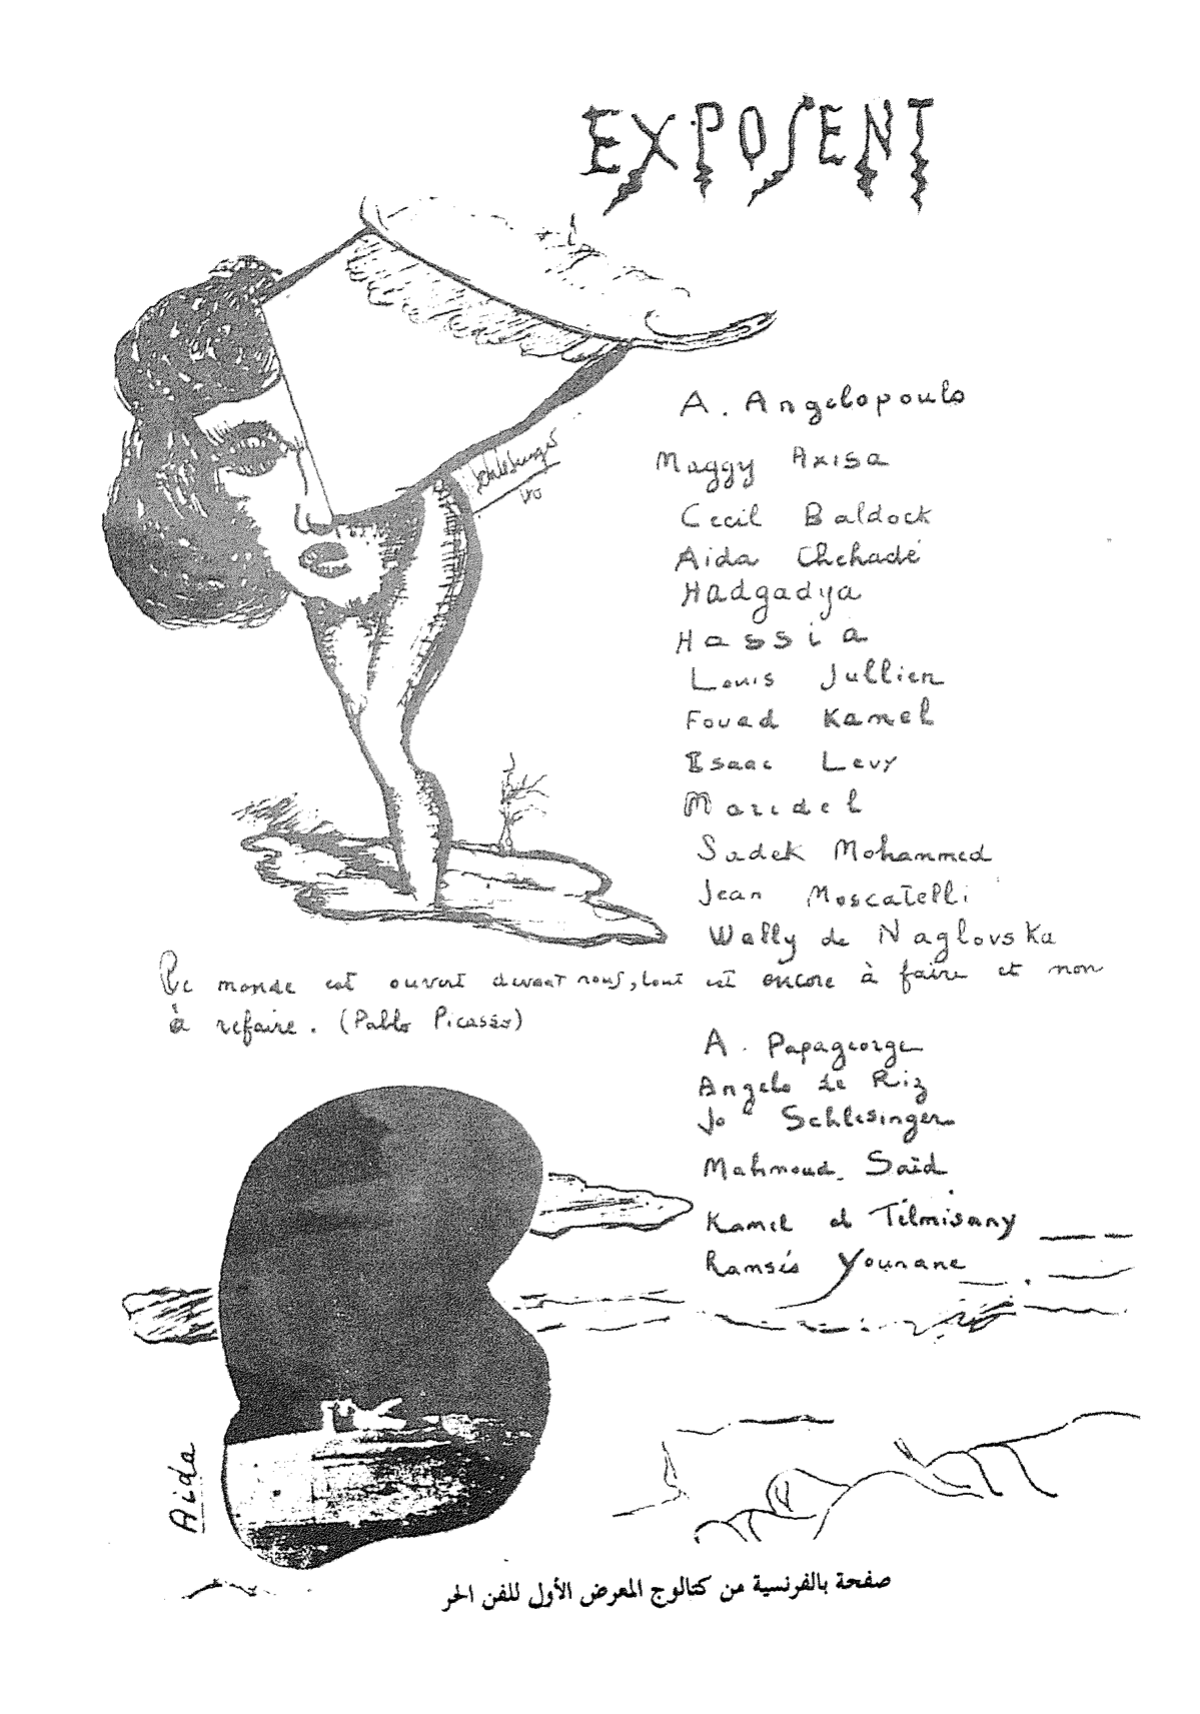 EXPOSENT
A. Angelopoulo
Maggy Axisa
Schlesinger
Cecil Baldock
Aida Chehadé
Hadgadya
Hassia
Louis Jullien
Fouad Kamel
Isaac Levy
Maridel
Sadek Mohammed
Jean Moscatelli
Wally de Naglovska
Le monde est ouvert devant nous, tout est encore à faire et non
à refaire. (Pablo Picasso)
A. Papageorge
Angelo de Riz
Jo Schlesinger
Mahmoud Saïd
Kamel el Telmisany
Ramsès Younane
Aida
صفحة بالفرنسية من كتالوج المعرض الأول للفن الحر